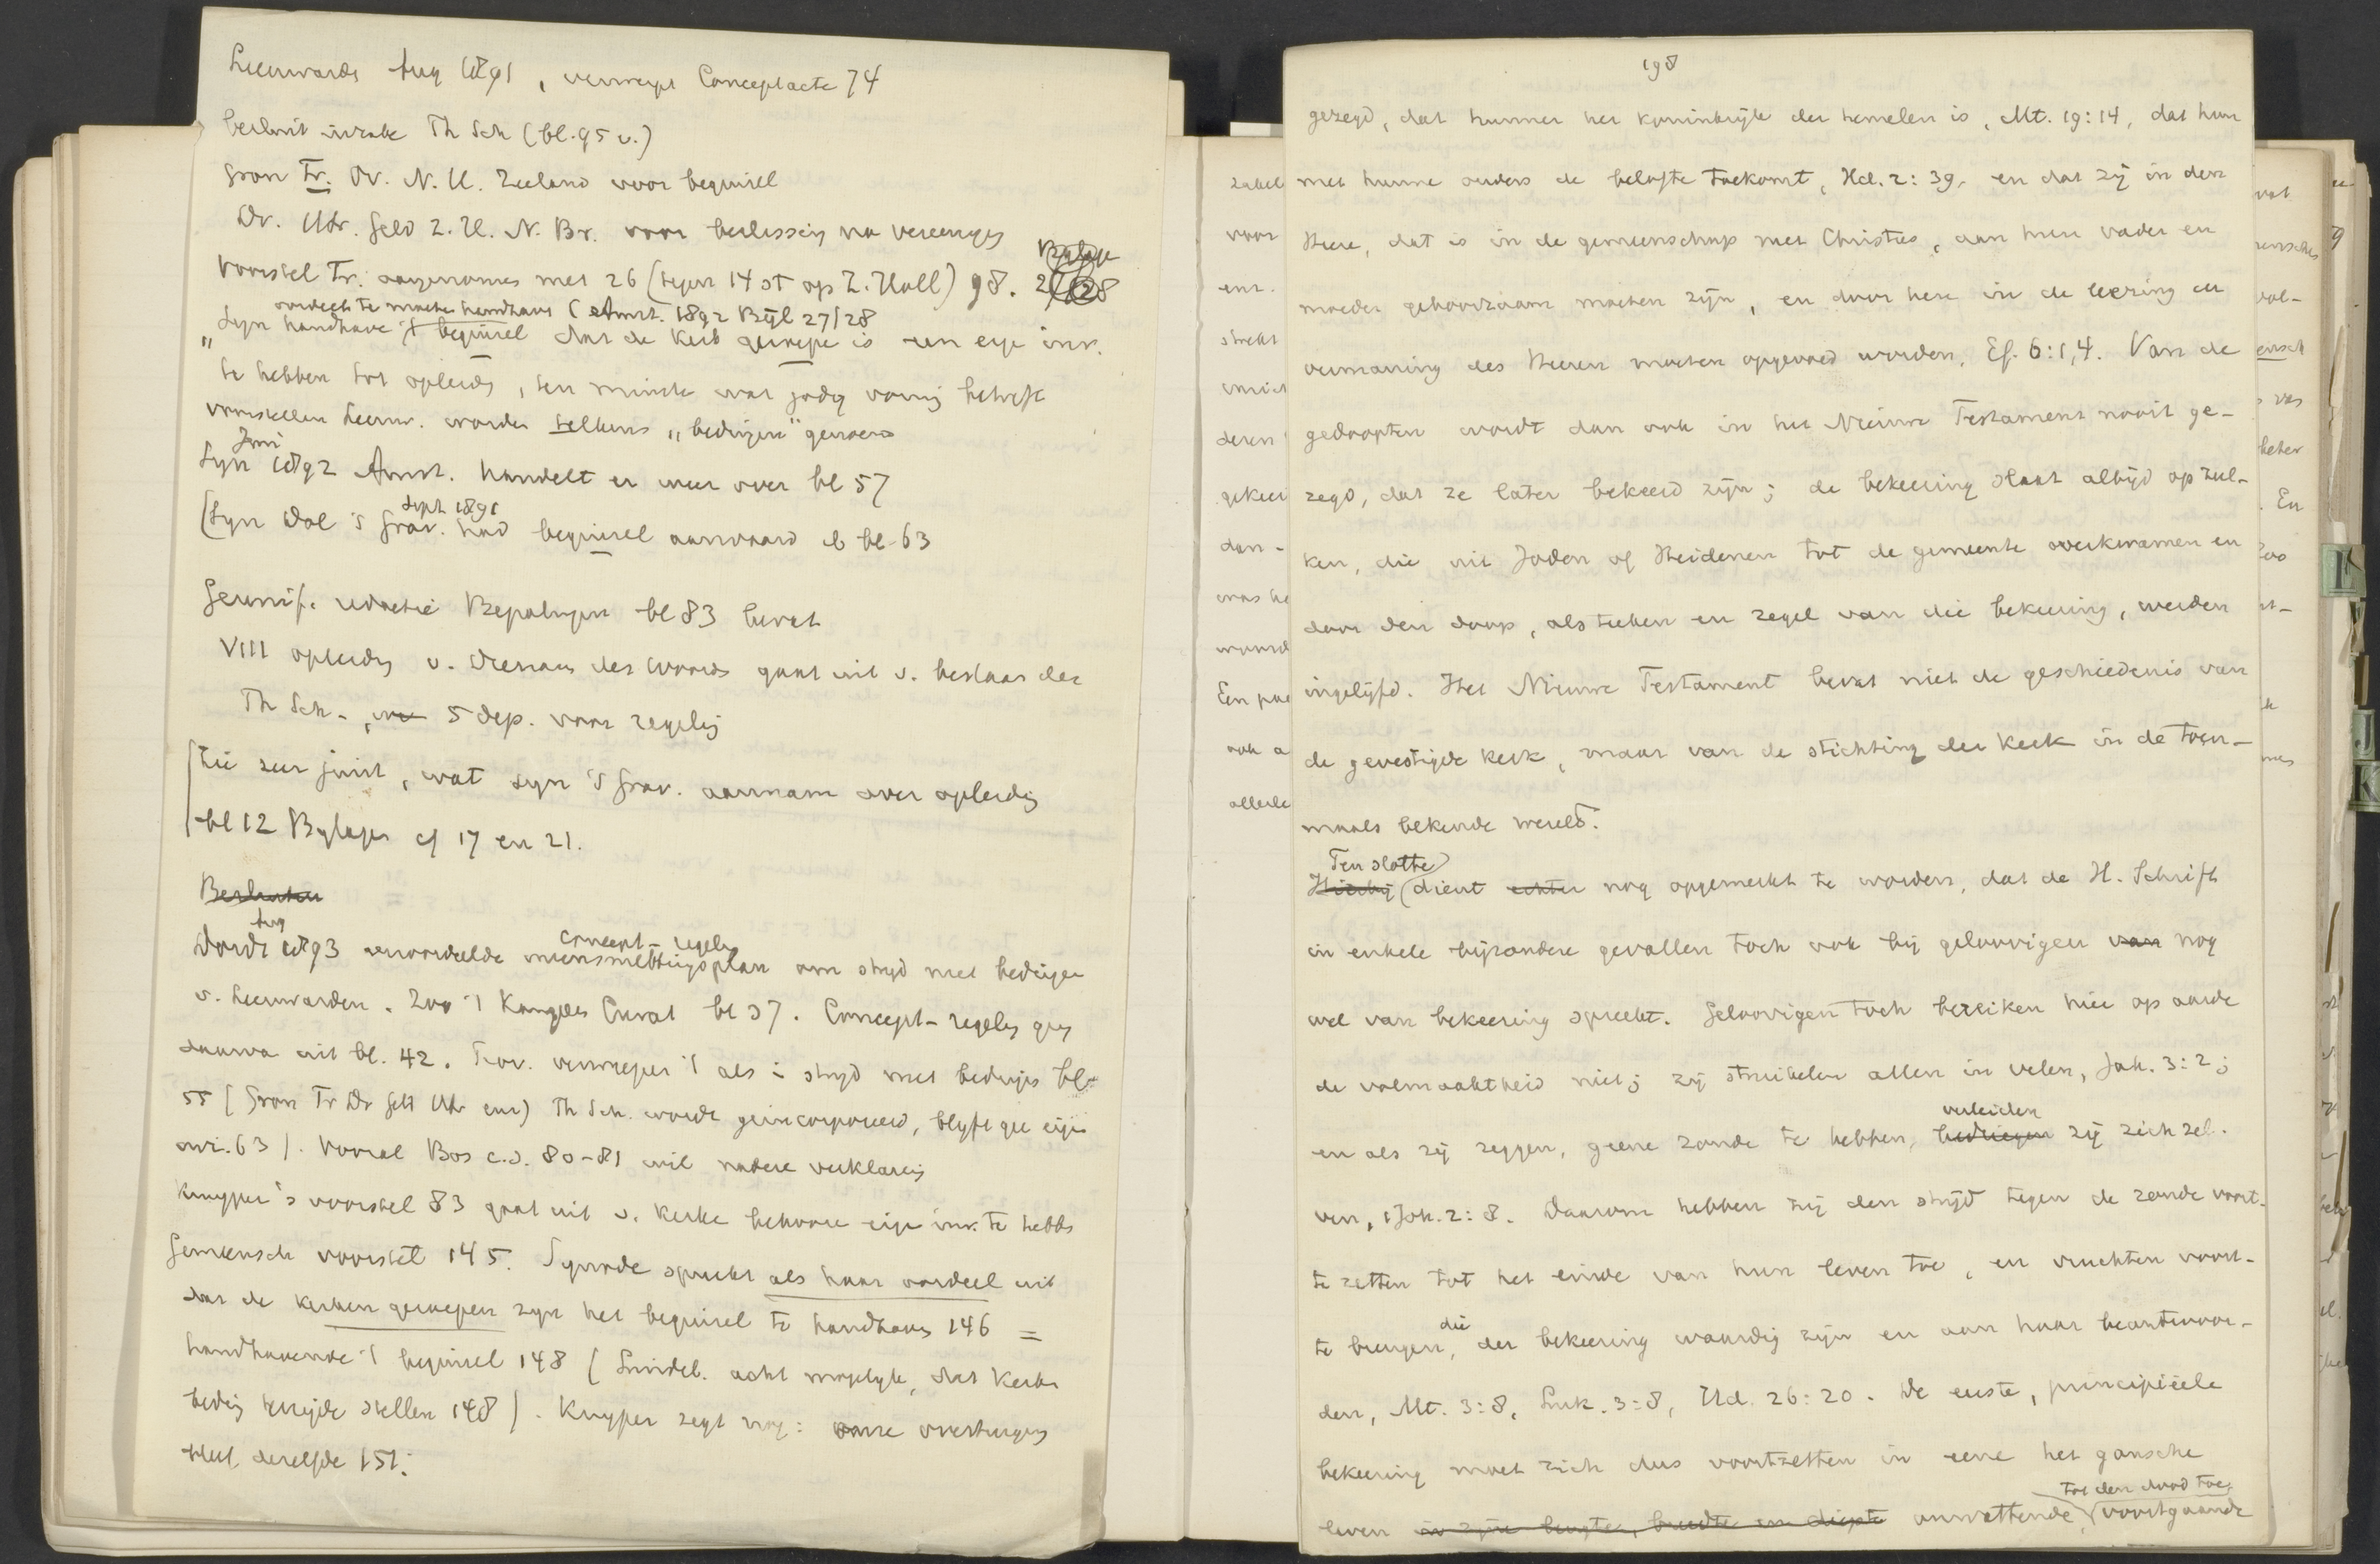 Leeuwarden Aug 1891, verwerpt Conceptacte 74
besluit inzake Th Sch (bl. 95 v.)
Gron Fr. Ov. N. H. Zeeland voor beginsel
Dr. Utr. Geld Z. H. N. Br. voor beslissing na vereeniging
Bijlage
voorstel Fr. aangenomen met 26 (tegen 14 st op Z. Holl) 98. 27/28
oordeelt te moeten handhaven (Amst. 1892 Bijl 27/28
"Syn handhave 't beginsel dat de Kerk geroepen is een eigen inr.
te hebben tot opleiding, ten minste wat godg vorming betreft
voorstellen Leeuw. worden telkens "bedingen" genoemd
Juni
Syn 1892 Amst. handelt er weer over bl 57
Sept 1891
(Syn Dol 's Grav. had beginsel aanvaard ib bl 63
Gewijz. redactie Bepalingen bl 83 bevat
VIII opleiding v. dienaren des Woords gaat uit v. bestaan der
Th Sch -, 5 dep. voor regeling
Zie zeer juist, wat Syn 's Grav. aannam over opleiding
bl 12 Bijlagen cf 17 en 21.
Besluiten
Aug
concept-regeling
Dordr 1893 veroordeelde ineensmeltingsplan om strijd met bedingen
v. Leeuwarden. Zoo 't Curat bl 37. Concept-regeling ging
daarna uit bl. 42. Prov. verwerpen 't als in strijd met bedingen bl
55 (Gron Fr Dr Geld Utr enz) Th Sch. wordt geincorporeerd, blijft gee eigen
inri. 63). Vooral Bos c.s. 80-81 wil nadere verklaring
Kuyper's voorstel 83 gaat uit v. Kerke behoore eigen inr. te hebben
Gemeensch voorstel 145. Synode spreekt als haar oordeel uit
dat de kerken geroepen zijn het beginsel te handhaven 146 =
handhavende 't beginsel 148 (Lindeb. acht mogelijk, dat Kerken
beding terzijde stellen 148). Kuyper zegt nog: onze overtuiging
blijft dezelfde 151.
198
gezegd, dat hunner het koninkrijk der hemelen is, Mt. 19:14, dat hun
met hunne ouders de belofte toekomt, Hd. 2:39. en dat zij in den
Heere, dat is in de gemeenschap met Christus, aan hun vader en
moeder gehoorzaam moeten zijn, en door hen in de leering en
vermaning des Heeren moeten opgevoed worden, Ef. 6:1,4. Van de
gedoopten wordt dan ook in het Nieuwe Testament nooit ge-
zegd, dat ze later bekeerd zijn; de bekeering slaat altijd op zul-
ken, die uit Joden of Heidenen tot de gemeente overkwamen en
door den doop, als teeken en zegel van die bekeering, werden
ingelijfd. Het Nieuwe Testament bevat niet de geschiedenis van
de gevestigde kerk, maar van de stichting der kerk in de toen-
maals bekende wereld.
Ten slotte
Hierbij dient echter nog opgemerkt te worden, dat de H. Schrift
in enkele bijzondere gevallen toch ook bij geloovigen van nog
wel van bekeering spreekt. Geloovigen toch bereiken hier op aarde
de volmaaktheid niet; zij struikelen allen in velen, Jak. 3:2;
verleiden
en als zij zeggen, geene zonde te hebben, bedriegen zij zich zel-
ven, 1 Joh. 2:8. Daarom hebben zij den strijd tegen de zonde voort-
te zetten tot het einde van hun leven toe, en vruchten voort-
die
te brengen, der bekeering waardig zijn en aan haar beantwoor-
den, Mt. 3:8, Luk. 3:8, Hd. 26:20. De eerste, principiëele
bekeering moet zich dus voortzetten in eene het gansche
tot den dood toe
leven in zijne lengte, breedte en diepte omvattende, voortgaande